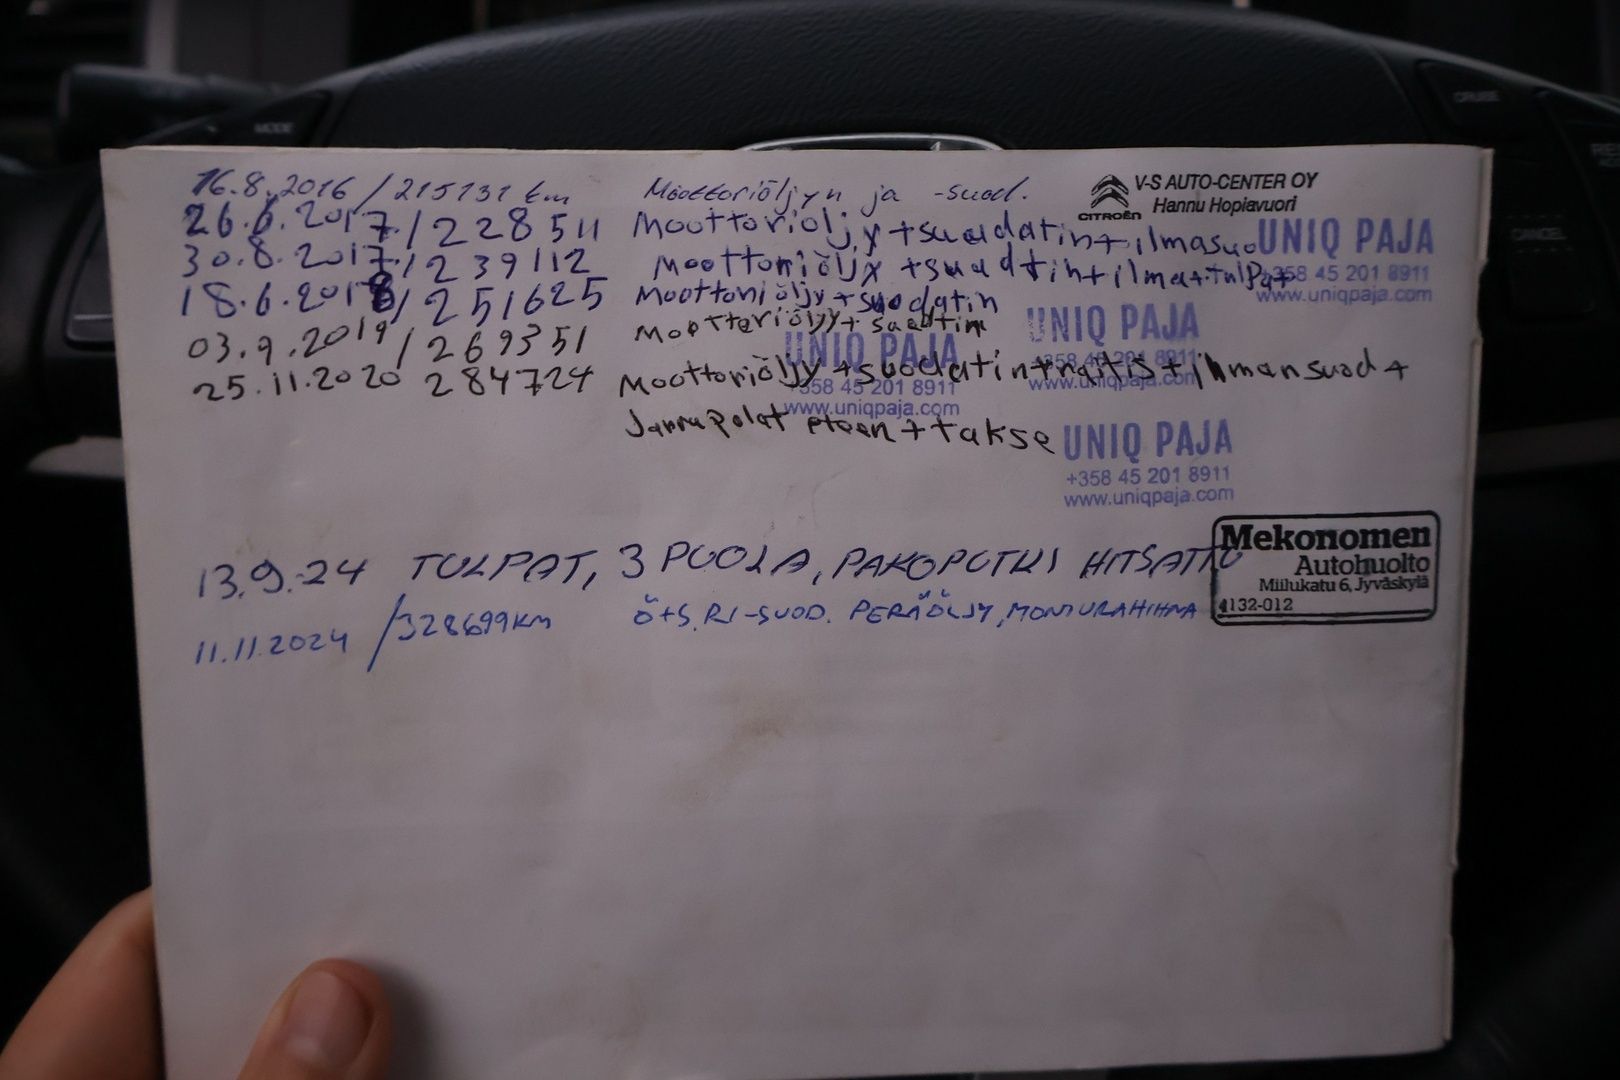 MODE
CRUISE
CANCEL
16.8.2016 / 215131 km Moottoriöljyn ja -suod.
CITROËN
V-S AUTO-CENTER OY
Hannu Hopiavuori
26.6.2017 / 228511 Moottoriöljy + suodatin + ilmasuo
UNIQ PAJA
+358 45 201 8911
www.uniqpaja.com
30.8.2017 / 239112 Moottoriöljy + suodatin + ilma + tulpat
18.6.2018 / 251625 Moottoriöljy + suodatin
UNIQ PAJA
+358 45 201 8911
www.uniqpaja.com
03.9.2019 / 269351 Moottoriöljy + suodatin
UNIQ PAJA
+358 45 201 8911
www.uniqpaja.com
25.11.2020 284724 Moottoriöljy + suodatin + raitis + ilmansuod +
Jarrupalat eteen + takse
UNIQ PAJA
+358 45 201 8911
www.uniqpaja.com
13.9.24 TULPAT, 3 PUOLA, PAKOPUTKI HITSATTU
11.11.2024 / 328699KM Ö+S, RI-SUOD. PERÄÖLJY, MONIURAHIHNA
Mekonomen
Autohuolto
Miilukatu 6, Jyväskylä
4132-012